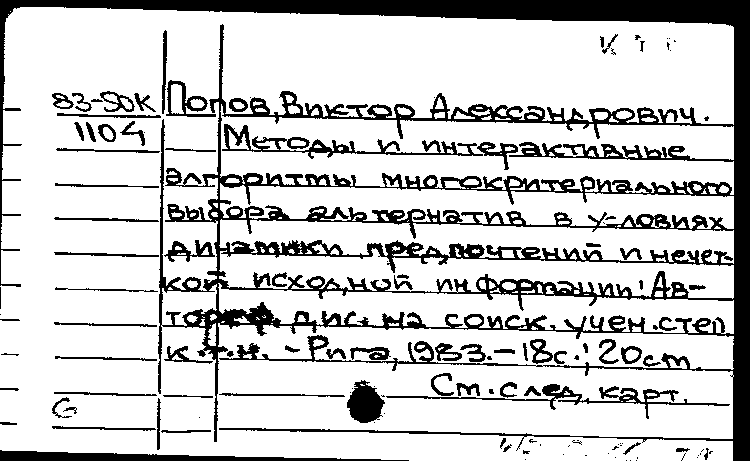 83-SOK Попов, Виктор Александрович.
1104 Методы и интерактивные
алгоритмы многокритериального
выбора альтернатив в условиях
динамики предпочтений и нечет-
кой исходной информации: Ав-
тореф. дис. на соиск. учен. степ.
к.т.н. - Рига, 1983. - 18с.; 20см.
См. след. карт.
G